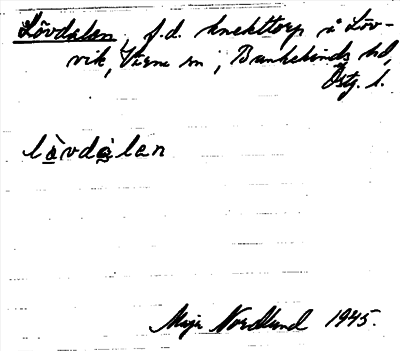 Lövdalen, f.d. knekttorp i Löv-
vik, Viene sn, Bankekinds hd,
Östg. l.
lövdalen
Maja Nordlund 1945.